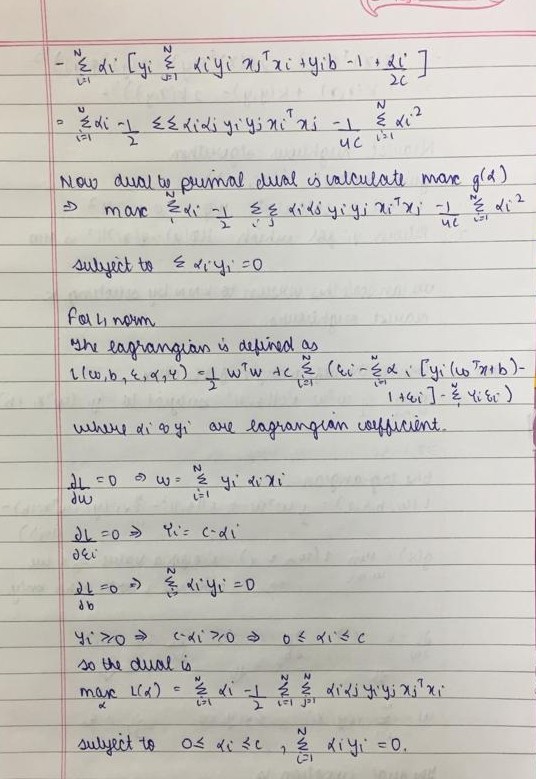 - N Σ i=1 αi [yi N Σ j=1 αiyi xjᵀxi + yib - 1 + αi/2c]
= N Σ i=1 αi - 1/2 ΣΣ αiαj yiyj xiᵀxj - 1/4c N Σ i=1 αi²
Now dual to primal dual is calculate max g(α)
⇒ max N Σ i=1 αi - 1/2 Σ i Σ j αiαj yiyj xiᵀxj - 1/4c N Σ i=1 αi²
subject to Σ αiyi = 0
for L1 norm
The lagrangian is defined as
L(ω,b,ε,α,γ) = 1/2 wᵀw + c N Σ i=1 (εi - N Σ i=1 αi [yi(ωᵀx+b)-
1+εi] - N Σ γiεi)
where αi & yi are lagrangian coefficient.
∂L/∂w = 0 ⇒ w = N Σ i=1 yi αi xi
∂L/∂εi = 0 ⇒ γi = c-αi
∂L/∂b = 0 ⇒ N Σ i= αiyi = 0
yi ≥ 0 ⇒ c-αi ≥ 0 ⇒ 0 ≤ αi ≤ c
so the dual is
max α L(α) = N Σ i=1 αi - 1/2 N Σ i=1 N Σ j=1 αiαj yiyj xjᵀxi
subject to 0 ≤ αi ≤ c , N Σ i=1 αiyi = 0.